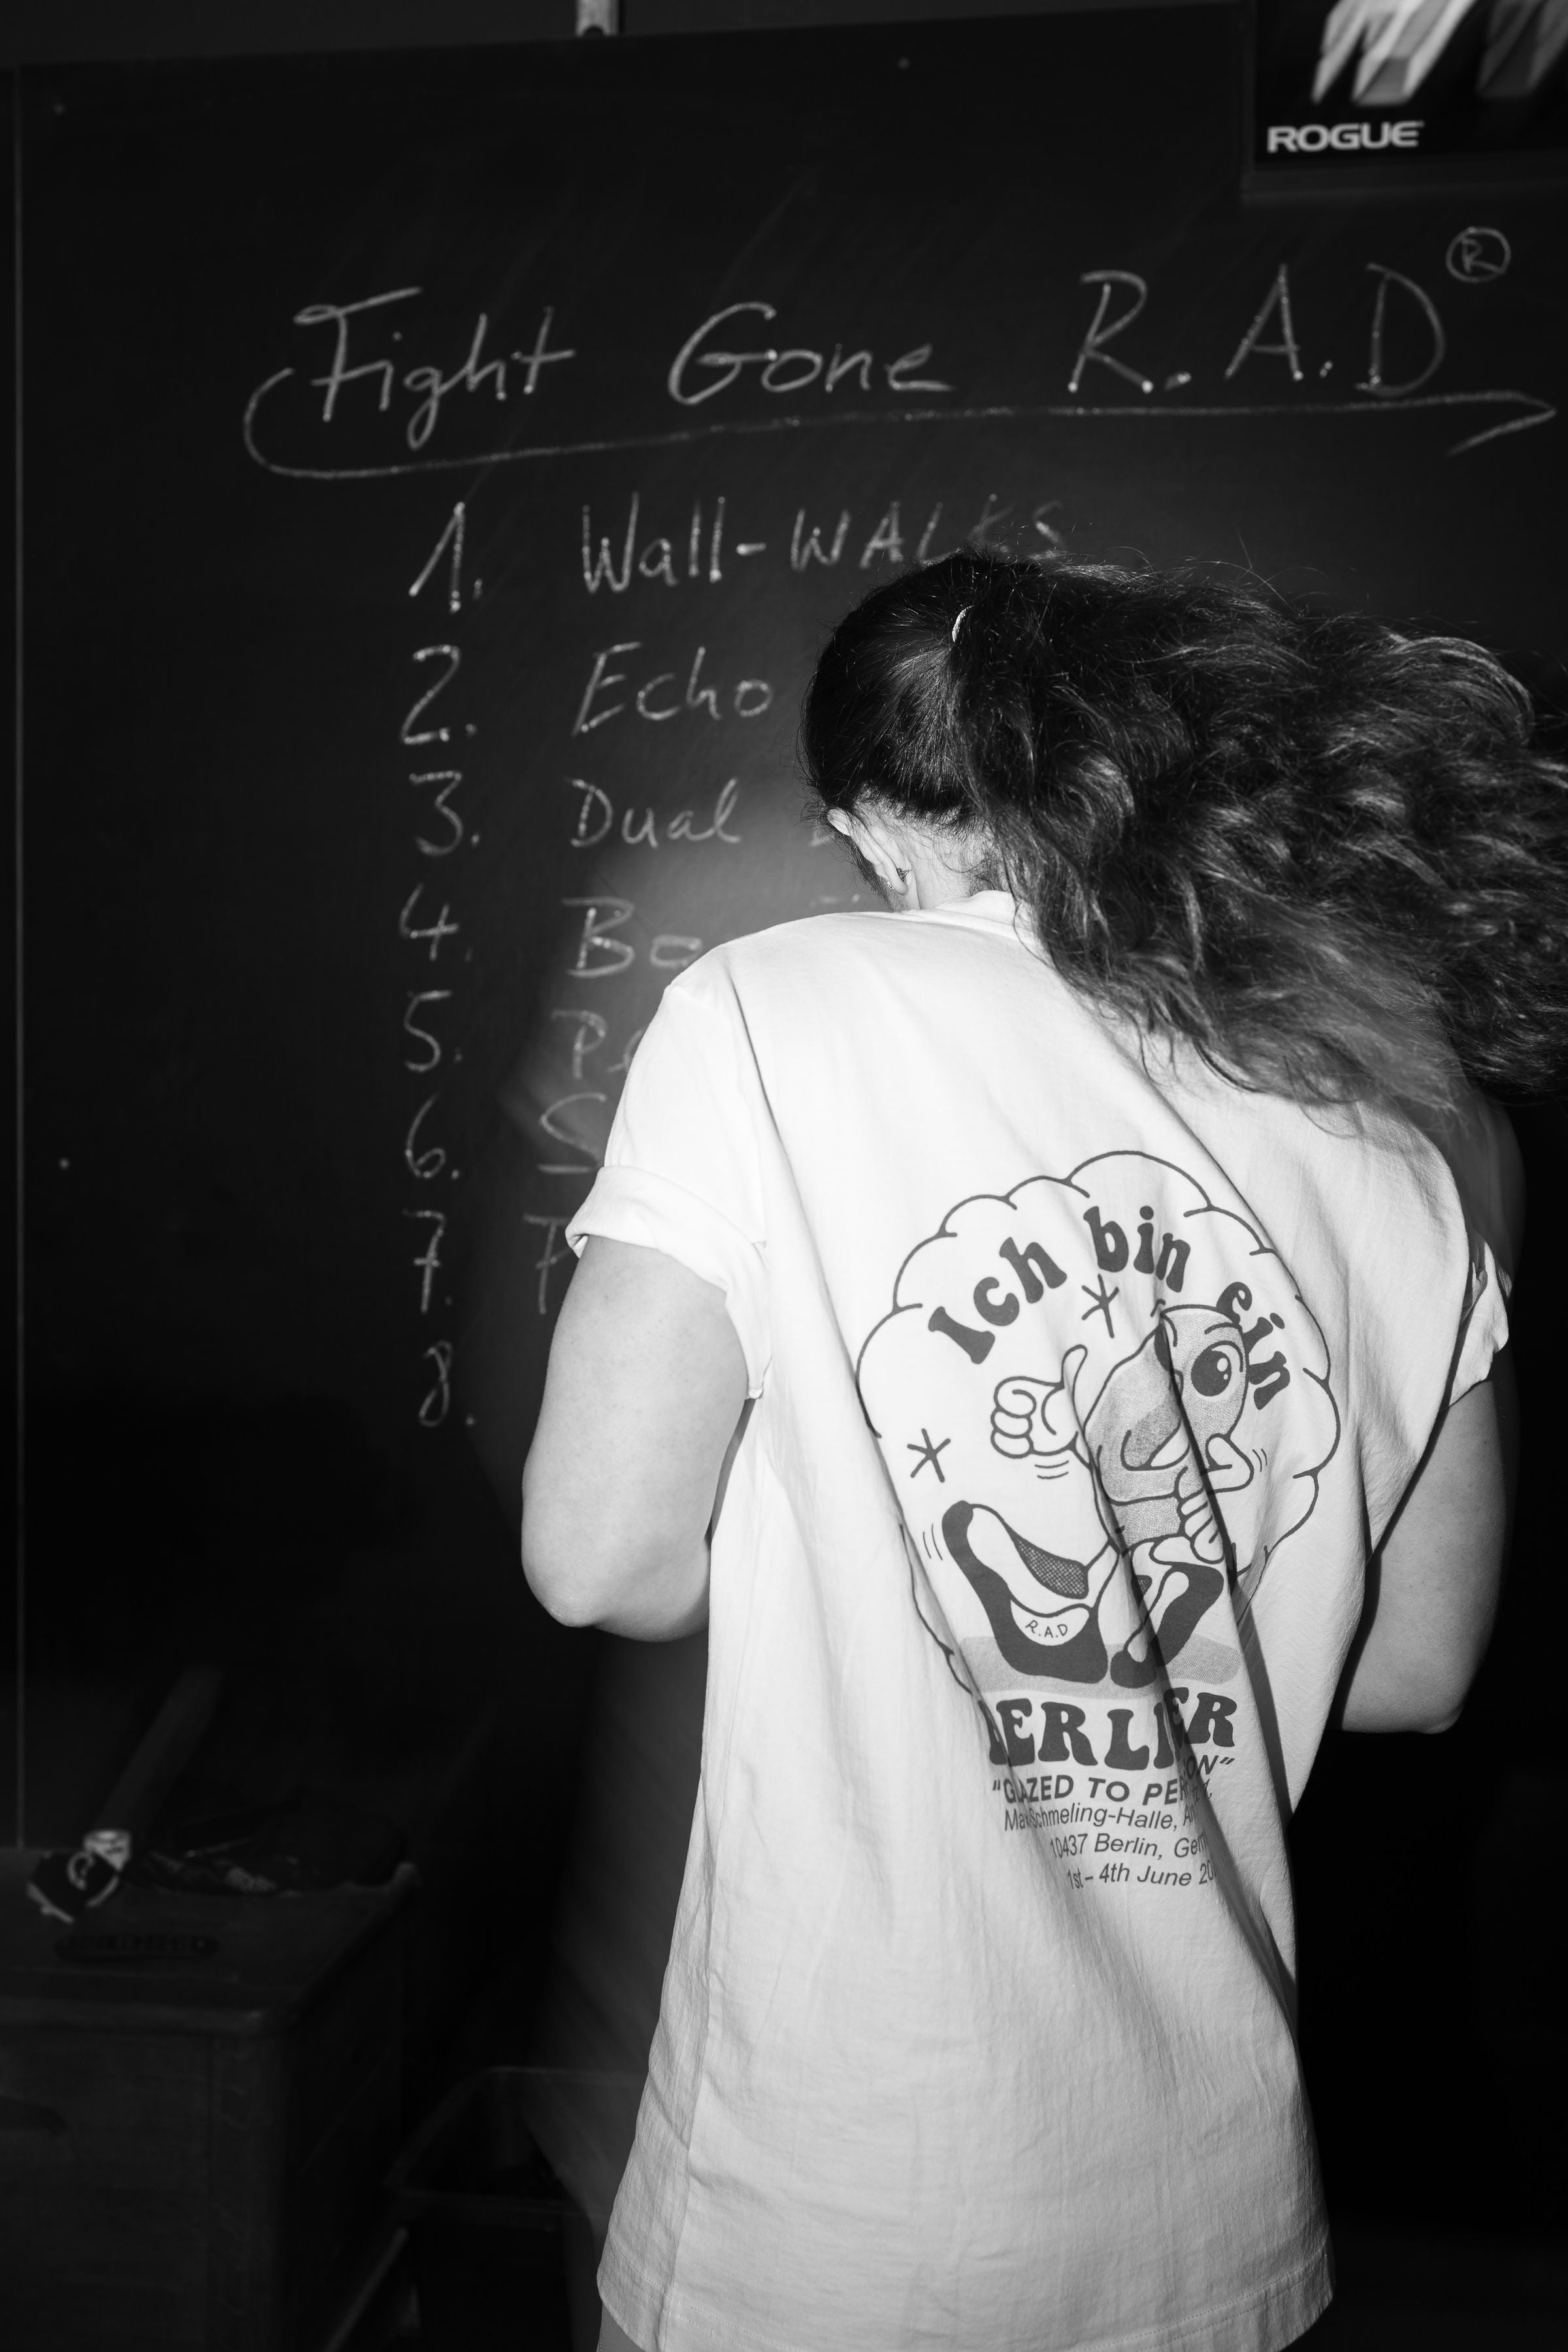 ROGUE
Fight Gone R.A.D ®
1. Wall-WALKS
2. Echo
3. Dual
4.
5.
6.
7.
8.
Ich bin ein
R.A.D
BERLINER
"GLAZED TO
Schmeling-Halle,
10437 Berlin,
1st - 4th June